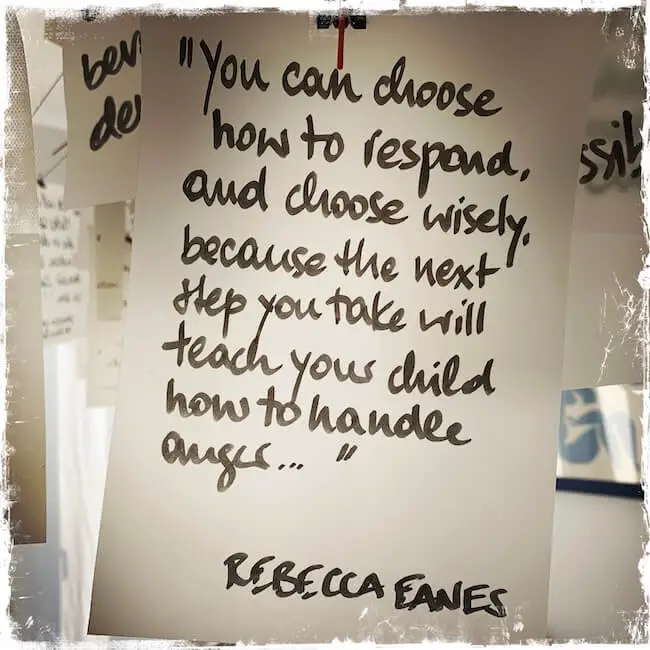 "You can choose
how to respond,
and choose wisely,
because the next
step you take will
teach your child
how to handle
anger... "
REBECCA EANES